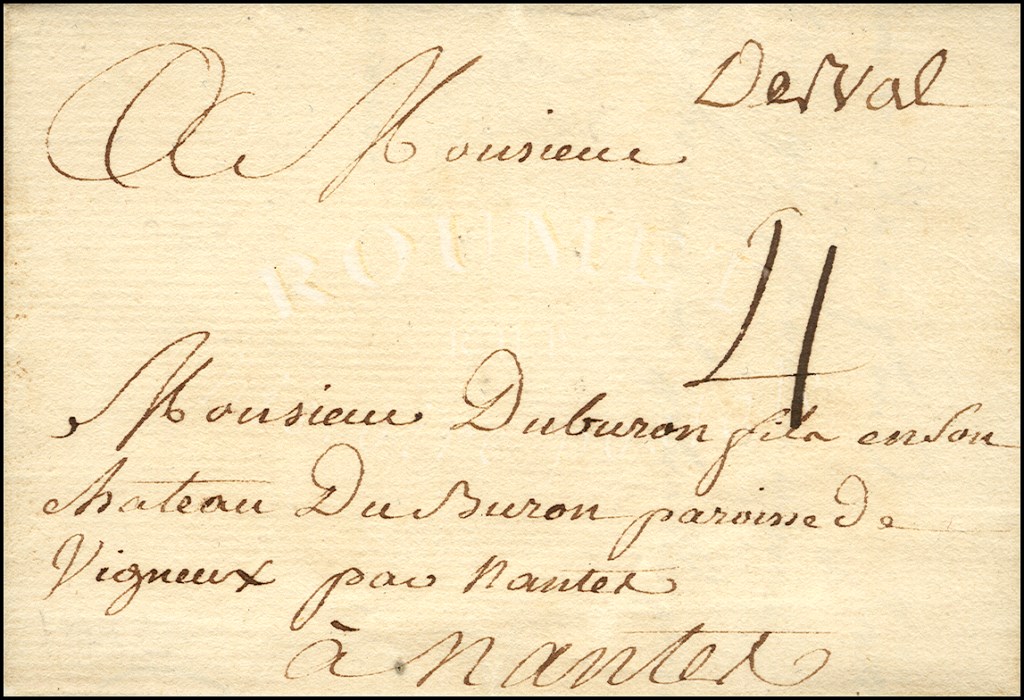 Derval
A Monsieur
ROUMET
4
Monsieur Duburon fils en son
chateau Du Buron paroisse de
Vigneux par Nantes
à Nantes